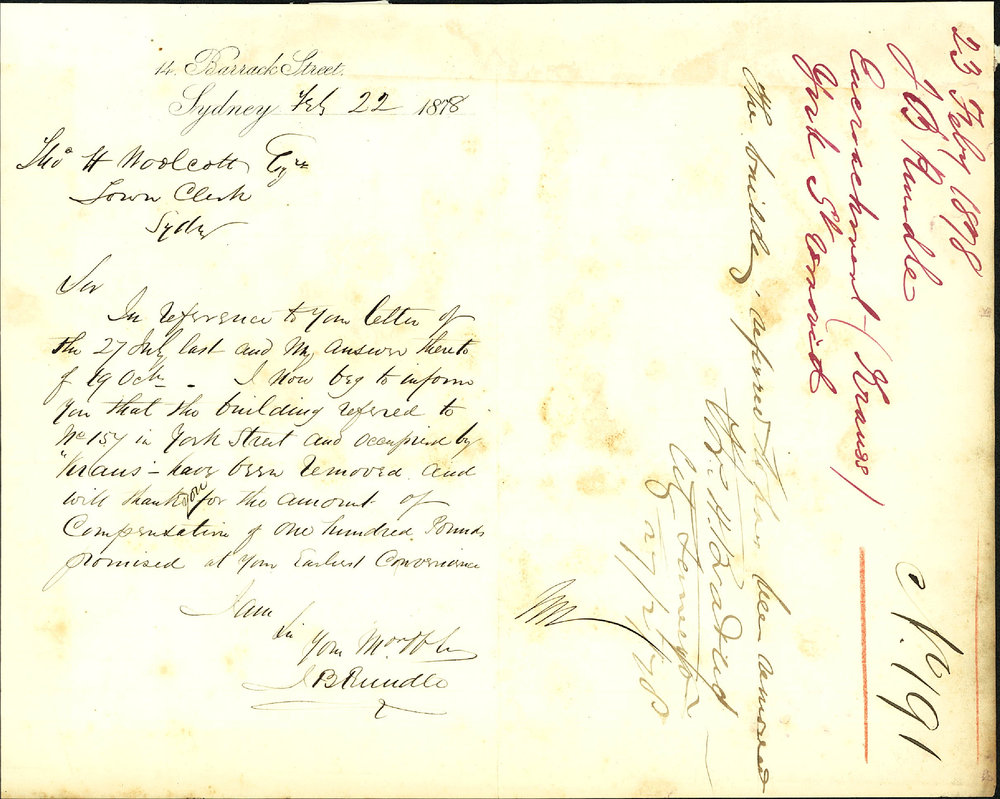 14. Barrack Street.
Sydney Feb 22 1878
Thos H Woolcott Esqre
Town Clerk
Sydney
Sir
In reference to your letter of
the 27 July last and my answer thereto
of 19 Octr. I now beg to inform
you that the building referred to
No 157 in York Street and occupied by
"Kraus" have been removed and
will thank you for the amount of
Compensation of One hundred Pounds
promised at your Earliest Convenience
I am
Sir
Your
J B Rundle
The building referred to have been removed
City
27/2/78
23 Feby 1878
J B Rundle
Encroachment (Krauss)
York St removed
No. 191